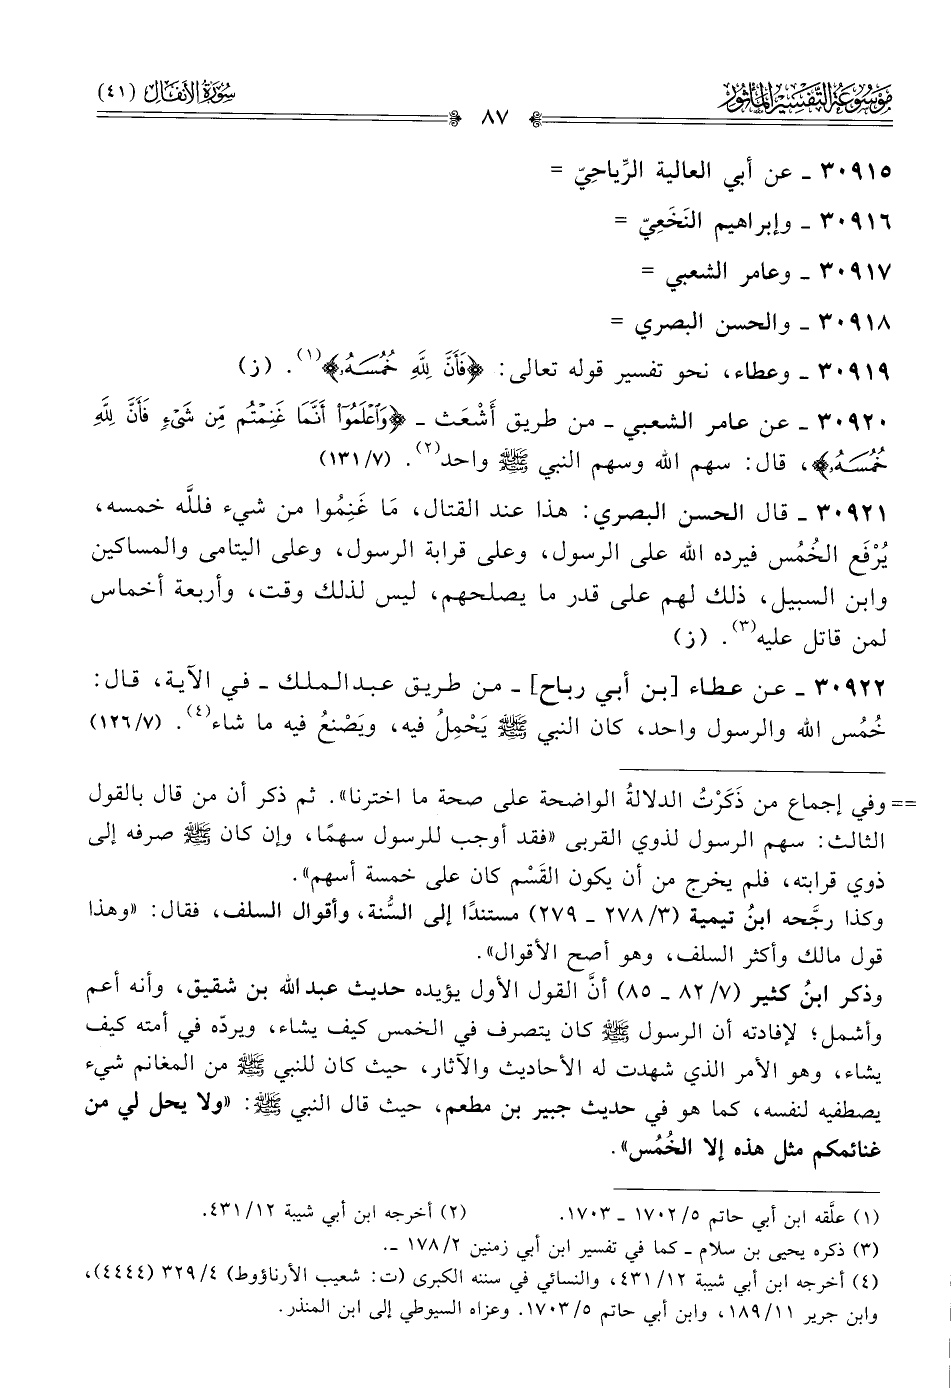 موسوعة التفسير المأثور
٨٧
سورة الأنفال (٤١)
٣٠٩١٥ ـ عن أبي العالية الرِّياحِيّ =
٣٠٩١٦ ـ وإبراهيم النَخَعِيّ =
٣٠٩١٧ ـ وعامر الشعبي =
٣٠٩١٨ ـ والحسن البصري =
٣٠٩١٩ ـ وعطاء، نحو تفسير قوله تعالى: ﴿فَأَنَّ لِلَّهِ خُمُسَهُۥ﴾(١). (ز)
٣٠٩٢٠ ـ عن عامر الشعبي ـ من طريق أَشْعَث ـ ﴿وَٱعْلَمُوٓا۟ أَنَّمَا غَنِمْتُم مِّن شَىْءٍ فَأَنَّ لِلَّهِ
خُمُسَهُۥ﴾، قال: سهم الله وسهم النبي ﷺ واحد(٢). (٧/١٣١)
٣٠٩٢١ ـ قال الحسن البصري: هذا عند القتال، مَا غَنِمُوا من شيء فللَّه خمسه،
يُرْفَع الخُمُس فيرده الله على الرسول، وعلى قرابة الرسول، وعلى اليتامى والمساكين
وابن السبيل، ذلك لهم على قدر ما يصلحهم، ليس لذلك وقت، وأربعة أخماس
لمن قاتل عليه(٣). (ز)
٣٠٩٢٢ ـ عن عطاء [بن أبي رباح] ـ من طريق عبدالملك ـ في الآية، قال:
خُمُس الله والرسول واحد، كان النبي ﷺ يَحْمِلُ فيه، ويَصْنَعُ فيه ما شاء(٤). (٧/١٢٦)
== وفي إجماع من ذَكَرْتُ الدلالةُ الواضحة على صحة ما اخترنا». ثم ذكر أن من قال بالقول
الثالث: سهم الرسول لذوي القربى «فقد أوجب للرسول سهمًا، وإن كان ﷺ صرفه إلى
ذوي قرابته، فلم يخرج من أن يكون القَسْم كان على خمسة أسهم».
وكذا رجَّحه ابنُ تيمية (٣/ ٢٧٨ ـ ٢٧٩) مستندًا إلى السُّنة، وأقوال السلف، فقال: «وهذا
قول مالك وأكثر السلف، وهو أصح الأقوال».
وذكر ابنُ كثير (٧/ ٨٢ ـ ٨٥) أنَّ القول الأول يؤيده حديث عبدالله بن شقيق، وأنه أعم
وأشمل؛ لإفادته أن الرسول ﷺ كان يتصرف في الخمس كيف يشاء، ويردّه في أمته كيف
يشاء، وهو الأمر الذي شهدت له الأحاديث والآثار، حيث كان للنبي ﷺ من المغانم شيء
يصطفيه لنفسه، كما هو في حديث جبير بن مطعم، حيث قال النبي ﷺ: «ولا يحل لي من
غنائمكم مثل هذه إلا الخُمُس».
(١) علَّقه ابن أبي حاتم ٥/ ١٧٠٢ ـ ١٧٠٣. (٢) أخرجه ابن أبي شيبة ١٢/ ٤٣١.
(٣) ذكره يحيى بن سلام ـ كما في تفسير ابن أبي زمنين ٢/ ١٧٨ ـ.
(٤) أخرجه ابن أبي شيبة ١٢/ ٤٣١، والنسائي في سننه الكبرى (ت: شعيب الأرناؤوط) ٤/ ٣٢٩ (٤٤٤٤)،
وابن جرير ١١/ ١٨٩، وابن أبي حاتم ٥/ ١٧٠٣. وعزاه السيوطي إلى ابن المنذر.